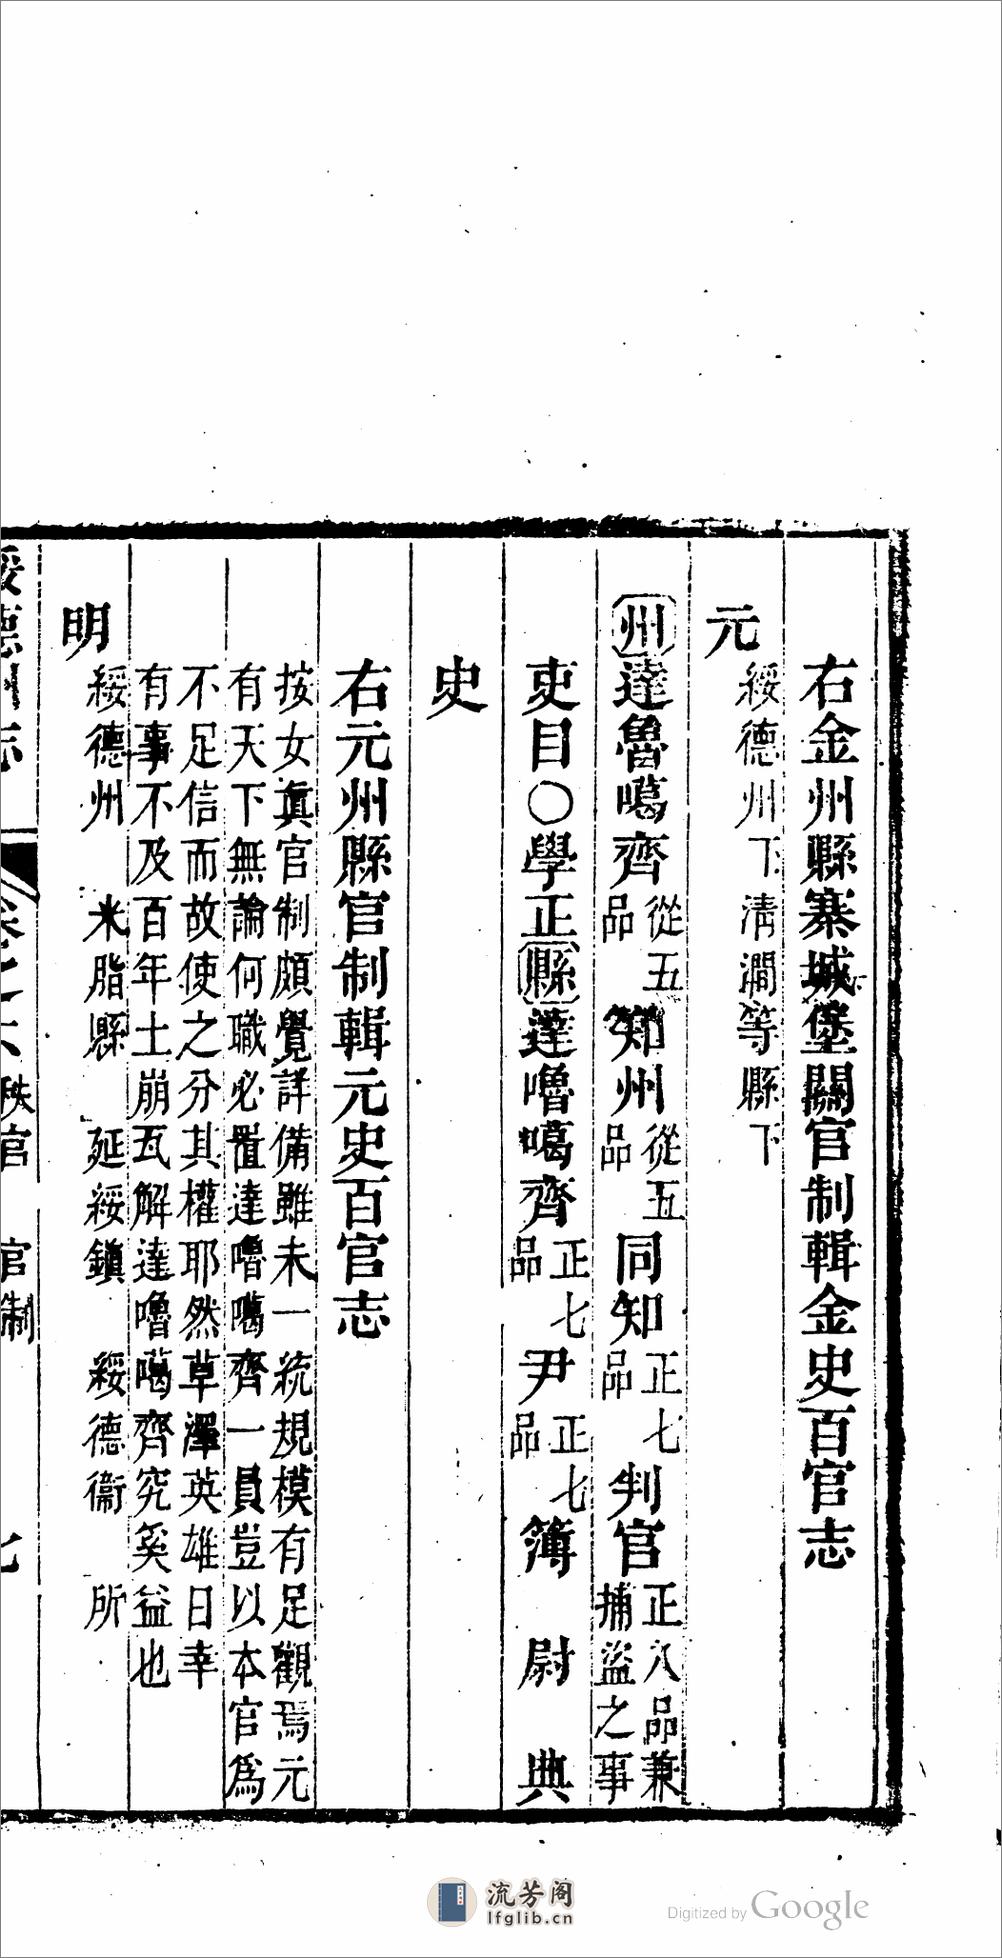 右金州縣寨城堡關官制輯金史百官志
元
綏德州下清澗等縣下
州達魯噶齊從五品 知州從五品 同知正七品 判官正八品兼捕盜之事
吏目○學正縣達嚕噶齊正七品 尹正七品 簿 尉 典
史
右元州縣官制輯元史百官志
按女真官制頗覺詳備雖未一統規模有足觀焉元
有天下無論何職必置達嚕噶齊一員豈以本官為
不足信而故使之分其權耶然草澤英雄日幸
有事不及百年土崩瓦解達嚕噶齊究奚益也
明
綏德州 米脂縣 延綏鎮 綏德衞 所
綏德州志 卷之六 秩官 官制 七
流芳阁
lfglib.cn
Digitized by Google